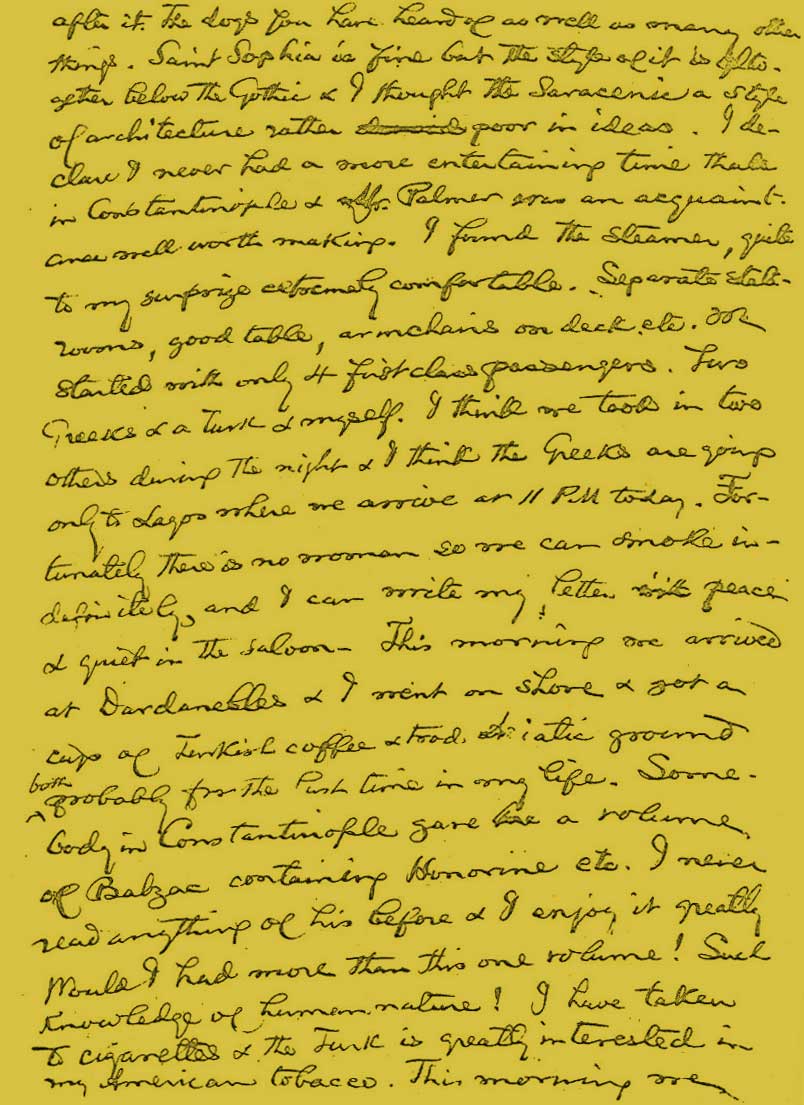 after it. The dogs you have heard of as well as many other
things. Saint Sophia is fine but the style of it is alto-
gether below the Gothic & I thought the Saracenic a style
of architecture rather poor in ideas. I de-
clare I never had a more entertaining time than
in Constantinople & Mr. Palmer was an acquaint-
ance well worth making. I found the steamer, quite
to my surprize extremely comfortable. Separate state-
rooms, good table, armchairs on deck etc. We
started with only 4 first class passengers. Two
Greeks & a Turk & myself. I think we took in two
others during the night & I think the Greeks are going
only to Lagos where we arrive at 11 PM today. For-
tunately there is no woman so we can smoke in-
definitely, and I can write my letter with peace
& quiet in the saloon— This morning we arrived
at Dardanelles & I went on shore & got a
cup of Turkish coffee & trod Asiatic ground
both
probably for the last time in my life. Some-
body in Constantinople gave me a volume
of Balzac containing Honorine etc. I never
read anything of his before & I enjoy it greatly
Would I had more than this one volume! Such
knowledge of human nature! I have taken
to cigarettes & the Turk is greatly interested in
my American tobacco. This morning we